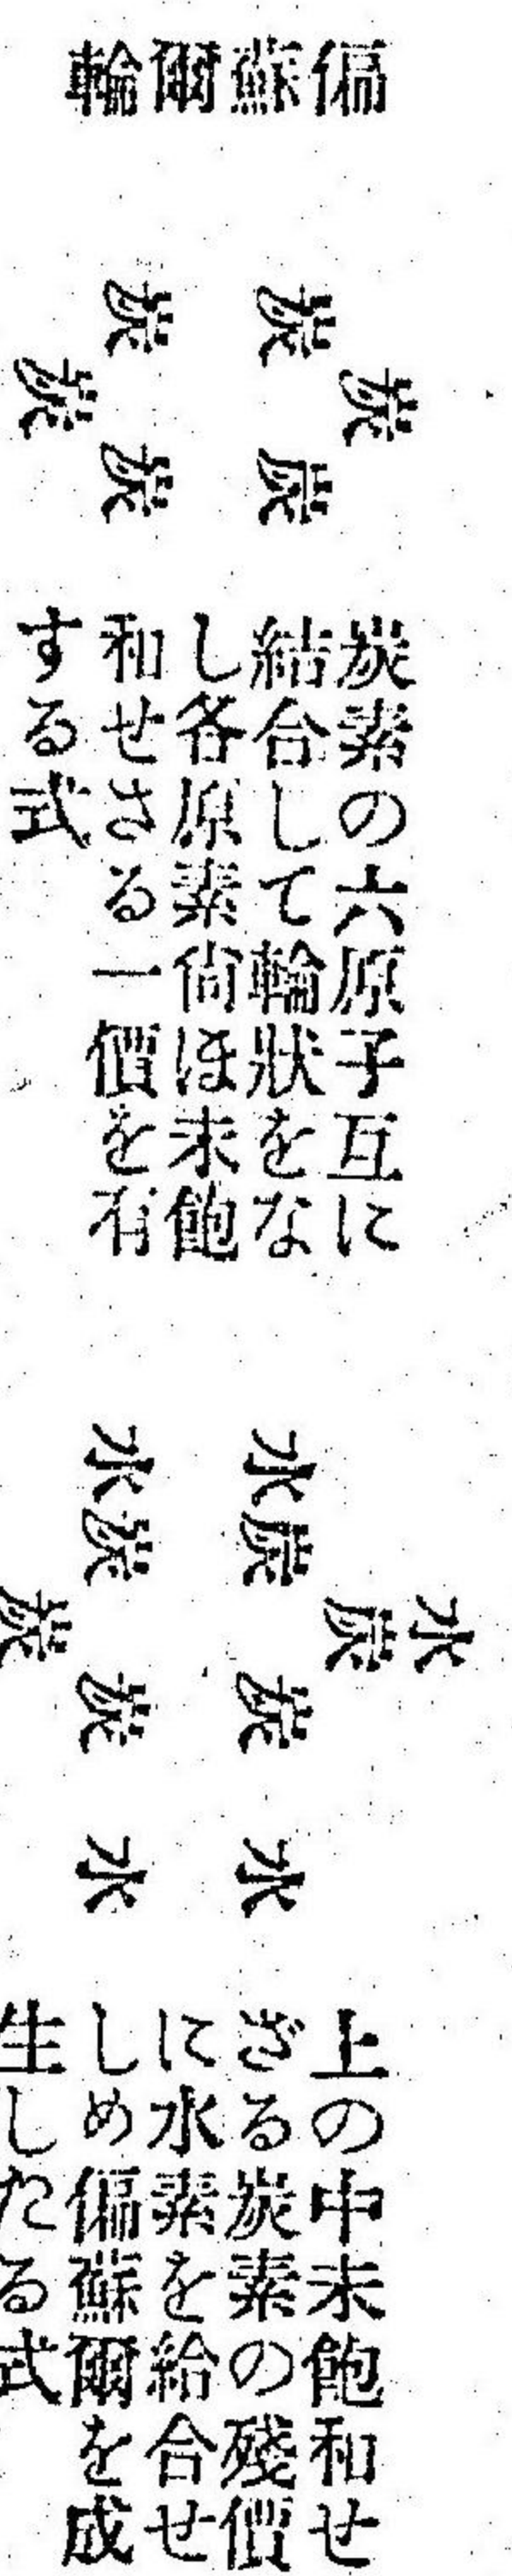 偏蘇爾輪
炭
炭 炭
炭 炭
炭
炭素の六原子互に
結合して輪狀をな
し各原素尙ほ未飽
和せさる一價を有
する式
水
炭
水炭 炭 水
水炭 炭 水
炭
上の中未飽和せ
ざる炭素の殘價
に水素を給合せ
しめ偏蘇爾を成
生したる式